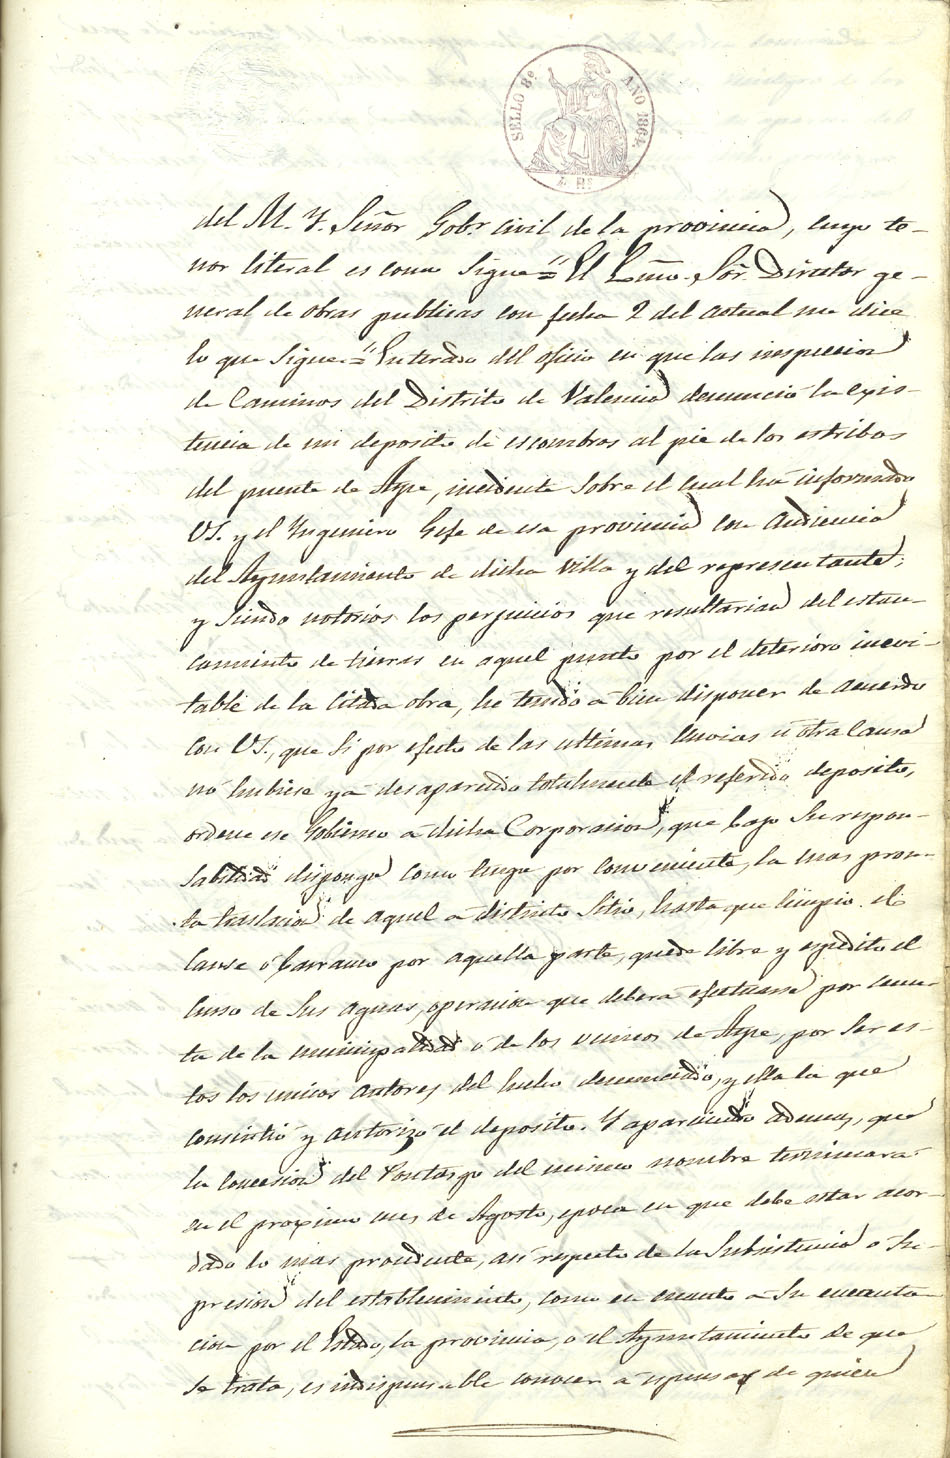 SELLO 8º AÑO 1864.
4 Rs
del M. Y. Señor Gobr. civil de la provincia, cuyo te-
nor literal es como sigue = "El Ilmo. Sor. Director ge-
neral de obras publicas con fecha 2 del actual me dice
lo que sigue = "Enterado del oficio en que las inspeccion
de Caminos del Distrito de Valencia denunció la exis-
tencia de un deposito de escombros al pie de los estribos
del puente de Aspe, incidente sobre el cual ha informado
VS. y el Yngeniero Gefe de esa provincia con audiencia
del Ayuntamiento de dicha villa y del representante;
y siendo notorios los perjuicios que resultarian del estan-
camiento de tierras en aquel punto por el deterioro inevi-
table de la citada obra, he tenido a bien disponer de acuerdo
con VS., que si por efecto de las ultimas lluvias ú otra causa
no hubiese ya desaparecido totalmente el referido deposito,
ordene ese Gobierno a dicha Corporacion, que bajo su respon-
sabilidad disponga como tenga por conveniente, la mas pron-
ta traslacion de aquel a distinto sitio, hasta que limpio el
cause ó barranco por aquella parte, quede libre y espedito el
curso de sus aguas, operacion que deberá efectuarse por cuen-
ta de la municipalidad ó de los vecinos de Aspe, por ser es-
tos los unicos autores del hecho denunciado, y ella la que
consintió y autorizó el deposito. Y apareciendo ademas, que
la concesion del Pontazgo del mismo nombre terminará
en el proximo mes de Agosto, epoca en que debe estar acor-
dado lo mas procedente, asi respecto de la subsistencia o su-
presion del establecimiento, como en cuanto a su encauta-
cion por el Estado, la provincia, o el Ayuntamiento de que
se trata, es indispensable conocer a espensas de quien